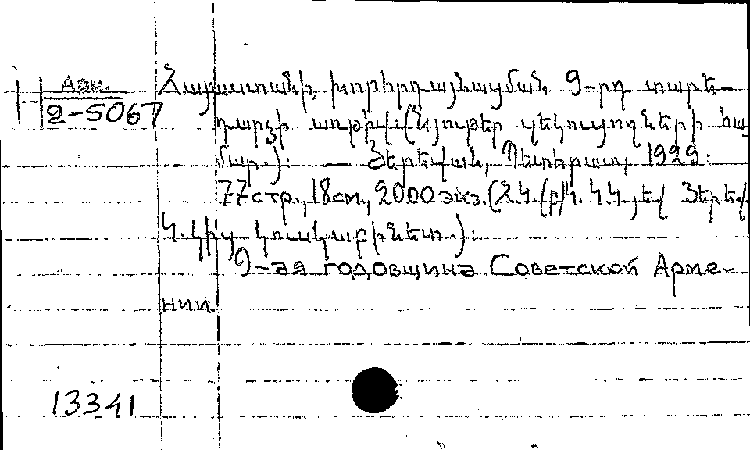 Арм.
2-5067
Հայաստանի խորհրդայնացման 9-րդ տարե-
դարձի առթիվ. (Նյութեր զեկուցողների հա
մար.): — Յերեվան, Պետհրատ, 1929:
77 стр., 18 см, 2000 экз. (Հ.Կ.(բ)Կ. Կ.Կ., և Յերև
9-ая годовщина Советской Арме-
нии
13341